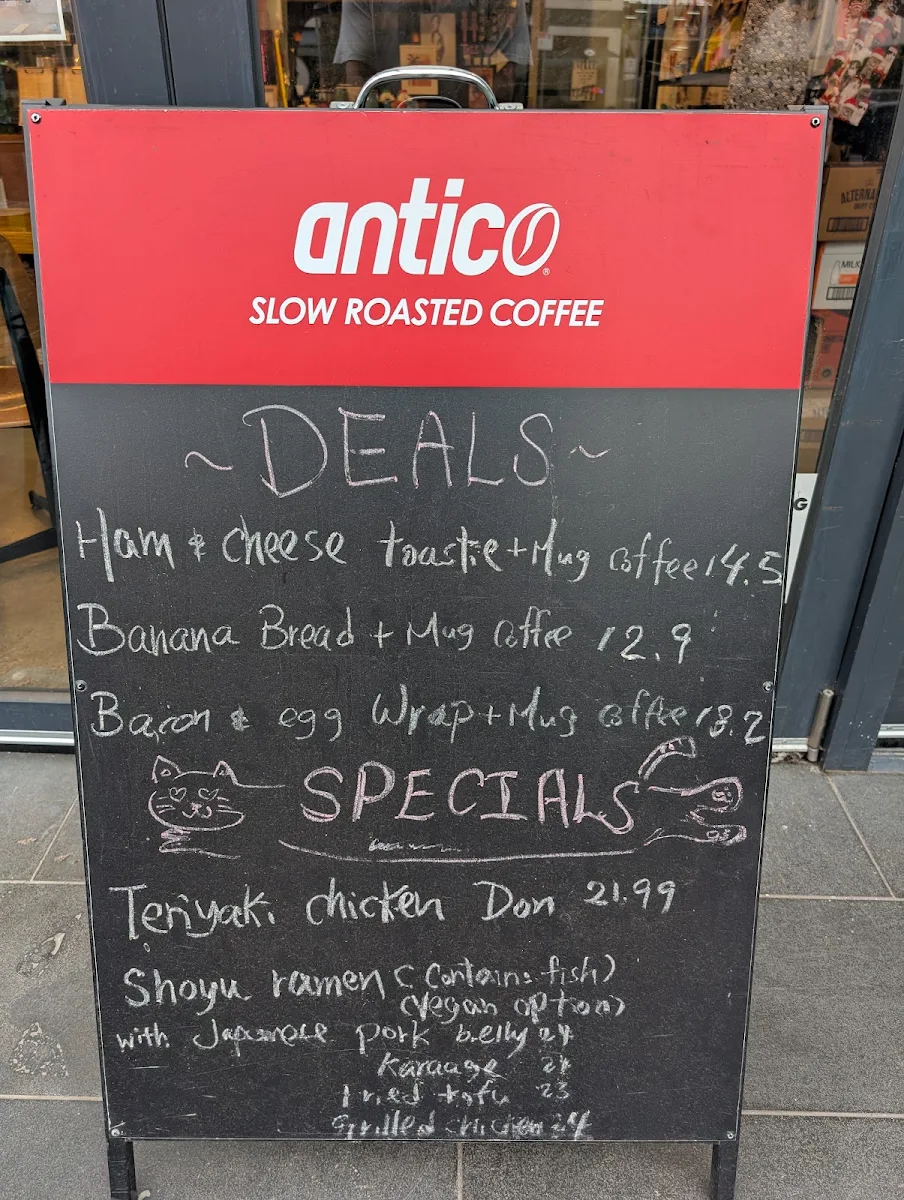 antico®
SLOW ROASTED COFFEE
~DEALS~
Ham & cheese toastie + Mug coffee 14.5
Banana Bread + Mug Coffee 12.9
Bacon & egg Wrap + Mug coffee 18.2
SPECIALS
Teriyaki chicken Don 21.99
Shoyu ramen (Contains fish)
(Vegan option)
with Japanese pork belly 24
Karaage 24
Fried tofu 23
Grilled chicken 24
ALTERNA
MILK
G